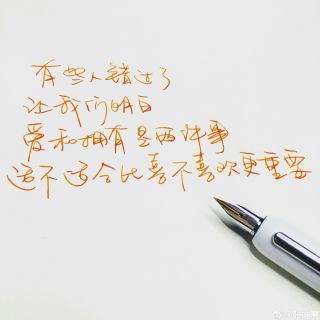 有些人错过了
让我们明白
爱和拥有是两件事
适不适合比喜不喜欢更重要